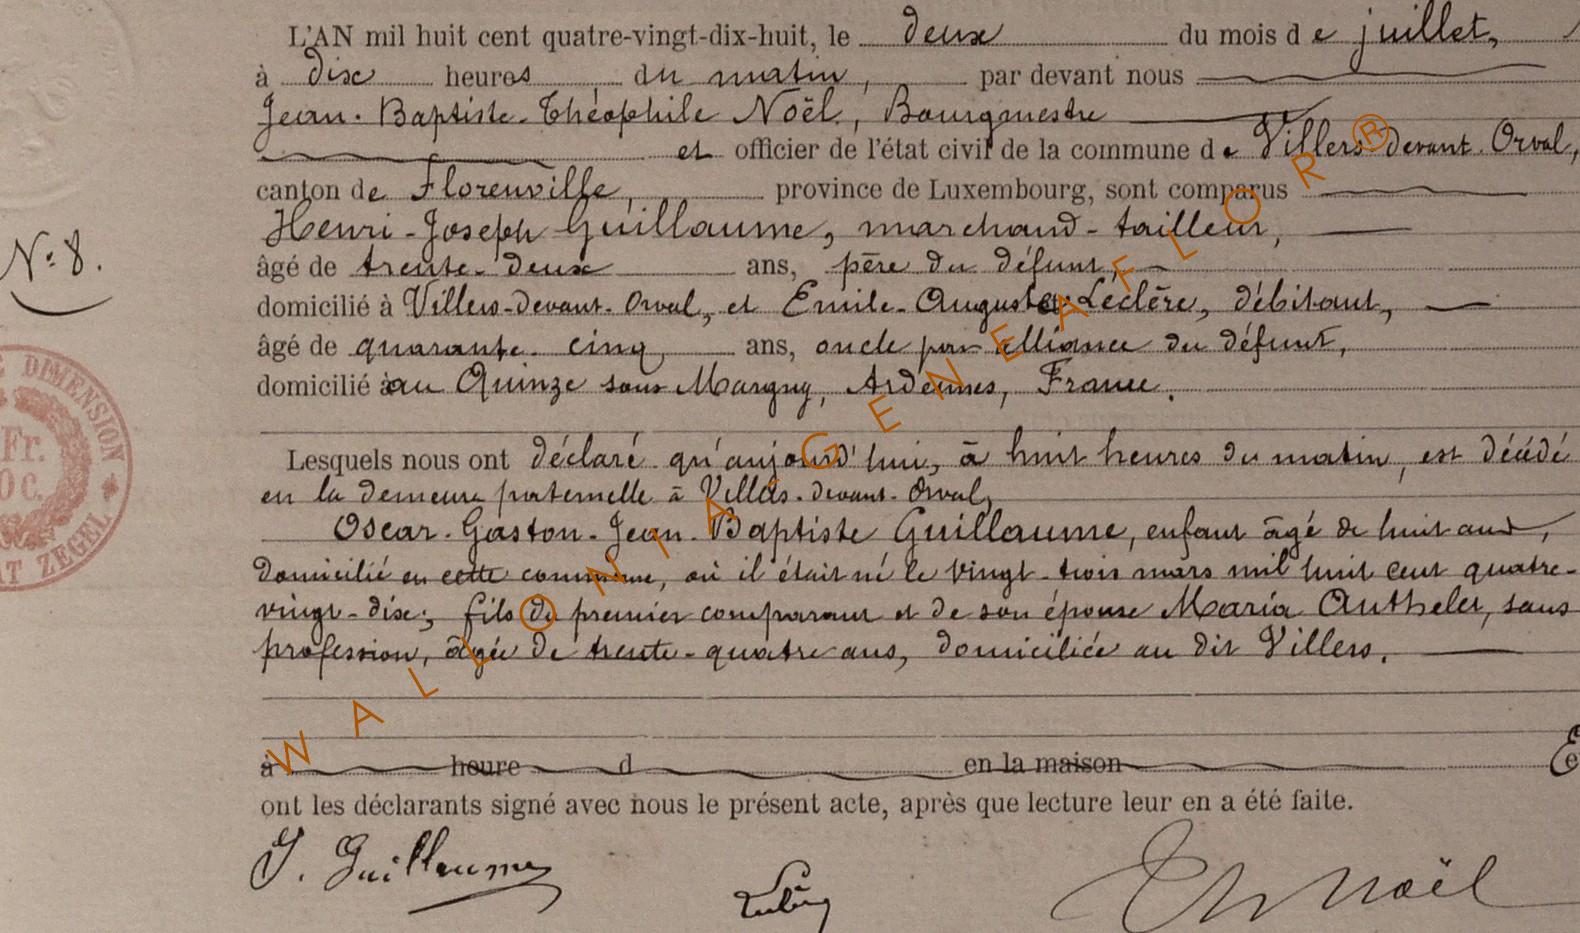 L'AN mil huit cent quatre-vingt-dix-huit, le deux du mois de juillet,
à dix heures du matin, par devant nous
Jean-Baptiste-Théophile Noël, Bourgmestre
et officier de l'état civil de la commune de Villers devant Orval,
canton de Florenville, province de Luxembourg, sont comparus
Henri-Joseph Guillaume, marchand-tailleur,
N° 8.
âgé de trente-deux ans, père du défunt,
domicilié à Villers-devant-Orval, et Emile-Auguste Léclère, débitant,
âgé de quarante-cinq ans, oncle par alliance du défunt,
domicilié au Quinze sous Margny, Ardennes, France.
DIMENSION
Fr.
0 c.
ZEGEL
Lesquels nous ont déclaré qu'aujourd'hui, à huit heures du matin, est décédé
en la demeure paternelle à Villers-devant-Orval,
Oscar-Gaston-Jean-Baptiste Guillaume, enfant âgé de huit ans,
domicilié en cette commune, où il était né le vingt-trois mars mil huit cent quatre-
vingt-dix; fils du premier comparant et de son épouse Maria Authelet, sans
profession, âgée de trente-quatre ans, domiciliée au dit Villers.
à heure d en la maison E
ont les déclarants signé avec nous le présent acte, après que lecture leur en a été faite.
J. Guillaume Th Noël
WALLONIA GENEAFLOR®